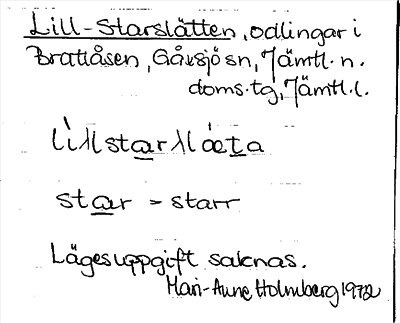 Lill-Starslätten, odlingar i
Brattåsen, Gåxsjö sn, Jämtl. n.
doms. tg, Jämtl. l.
star = starr
Lägesuppgift saknas.
Mari-Anne Holmberg 1972